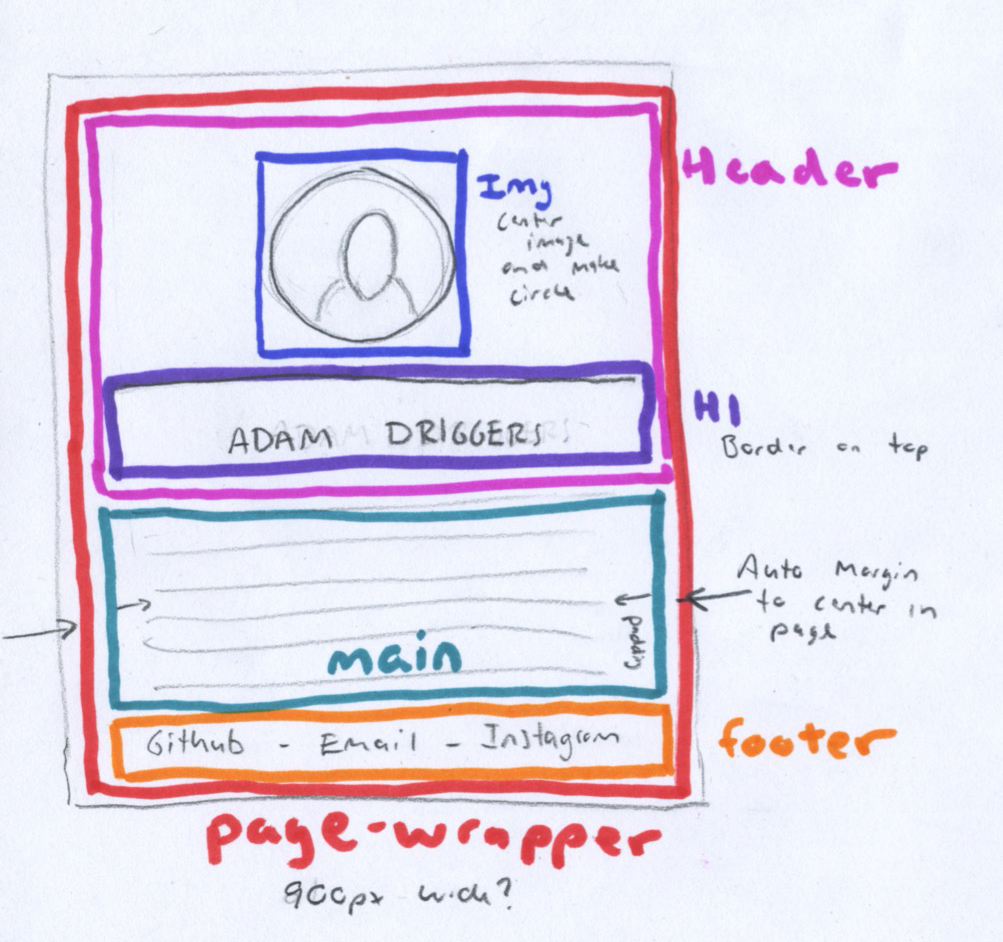 Header
Img
center
image
and make
circle
H1
Border on top
ADAM DRIGGERS
Auto Margin
to center in
page
padding
main
Github - Email - Instagram
footer
page-wrapper
900px wide?